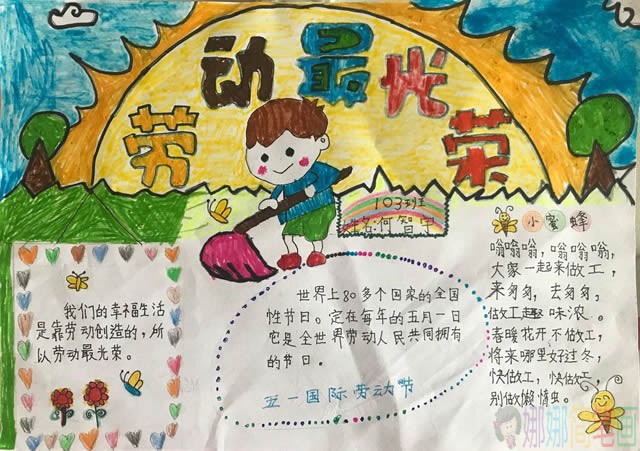 劳动最光荣
103班
姓名:何智宇
我们的幸福生活
是靠劳动创造的,所
以劳动最光荣。
世界上80多个国家的全国
性节日。定在每年的五月一日
它是全世界劳动人民共同拥有
的节日。
五一国际劳动节
小蜜蜂
嗡嗡嗡,嗡嗡嗡,
大家一起来做工,
来匆匆,去匆匆,
做工趣味浓。
春暖花开不做工,
将来哪里好过冬,
快做工,快做工,
别做懒惰虫。
娜娜简笔画